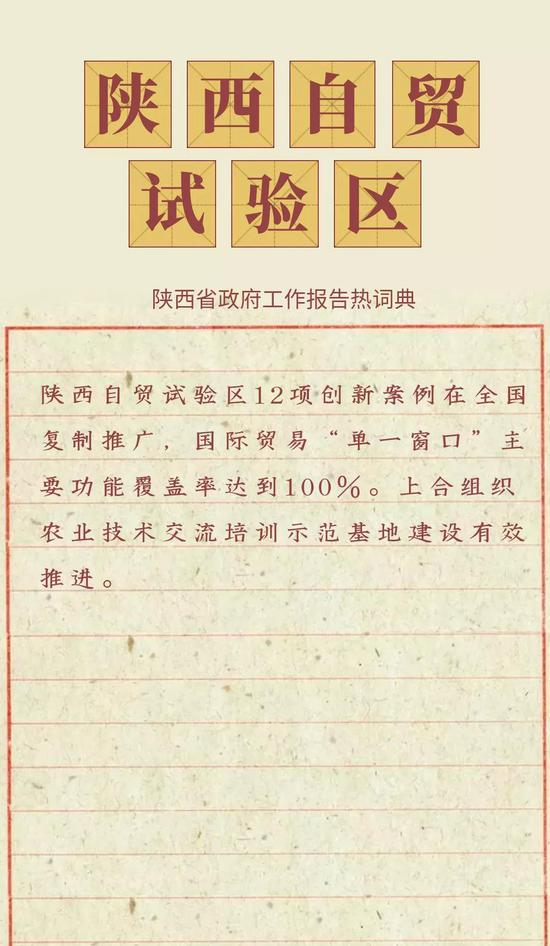 陕西自贸
试验区
陕西省政府工作报告热词典
陕西自贸试验区12项创新案例在全国
复制推广，国际贸易“单一窗口”主
要功能覆盖率达到100%。上合组织
农业技术交流培训示范基地建设有效
推进。